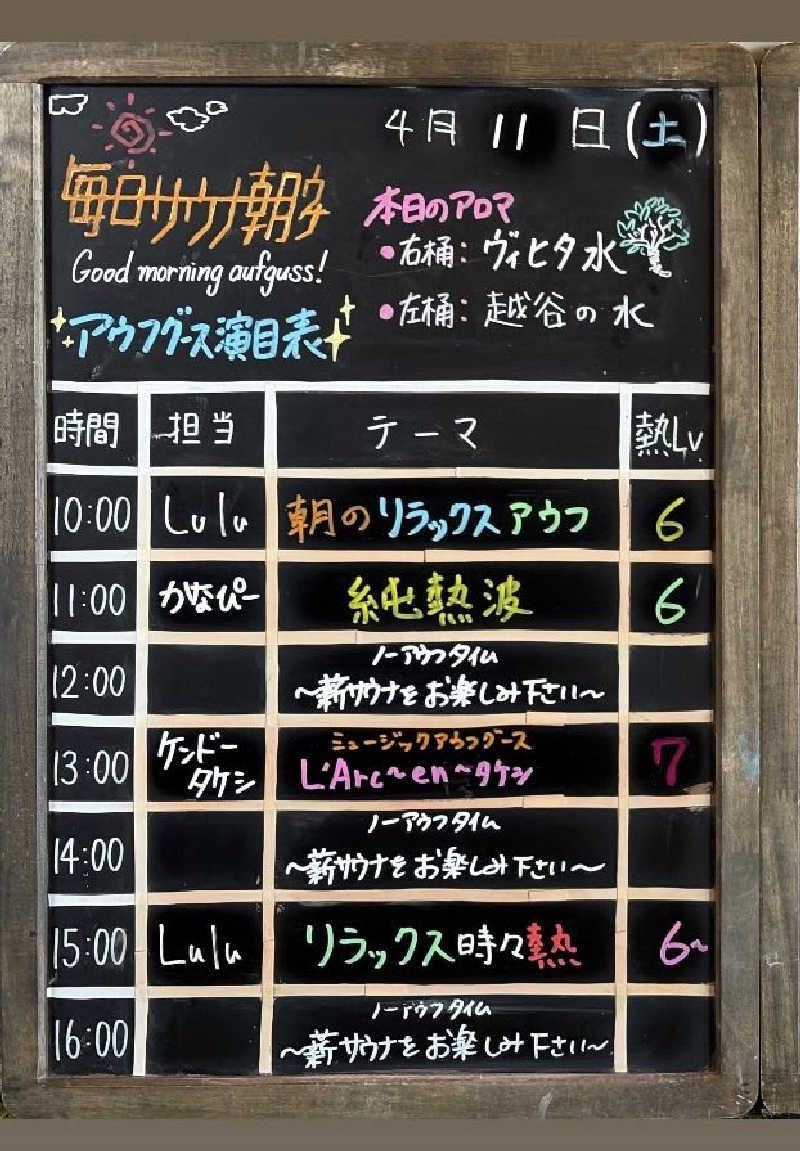 4月 11 日(土)
毎日サウナ朝らく
Good morning aufguss!
アウフグース演目表
本日のアロマ
•右桶: ヴィヒタ水
•左桶: 越谷の水
時間 担当 テーマ 熱Lv
10:00 Lulu 朝のリラックスアウフ 6
11:00 かなぴー 純熱波 6
12:00 ノーアウフタイム
〜薪サウナをお楽しみ下さい〜
13:00 ケンドータケシ ミュージックアウフグース 7
L'Arc〜en〜タケシ
14:00 ノーアウフタイム
〜薪サウナをお楽しみ下さい〜
15:00 Lulu リラックス時々熱 6~
16:00 ノーアウフタイム
〜薪サウナをお楽しみ下さい〜